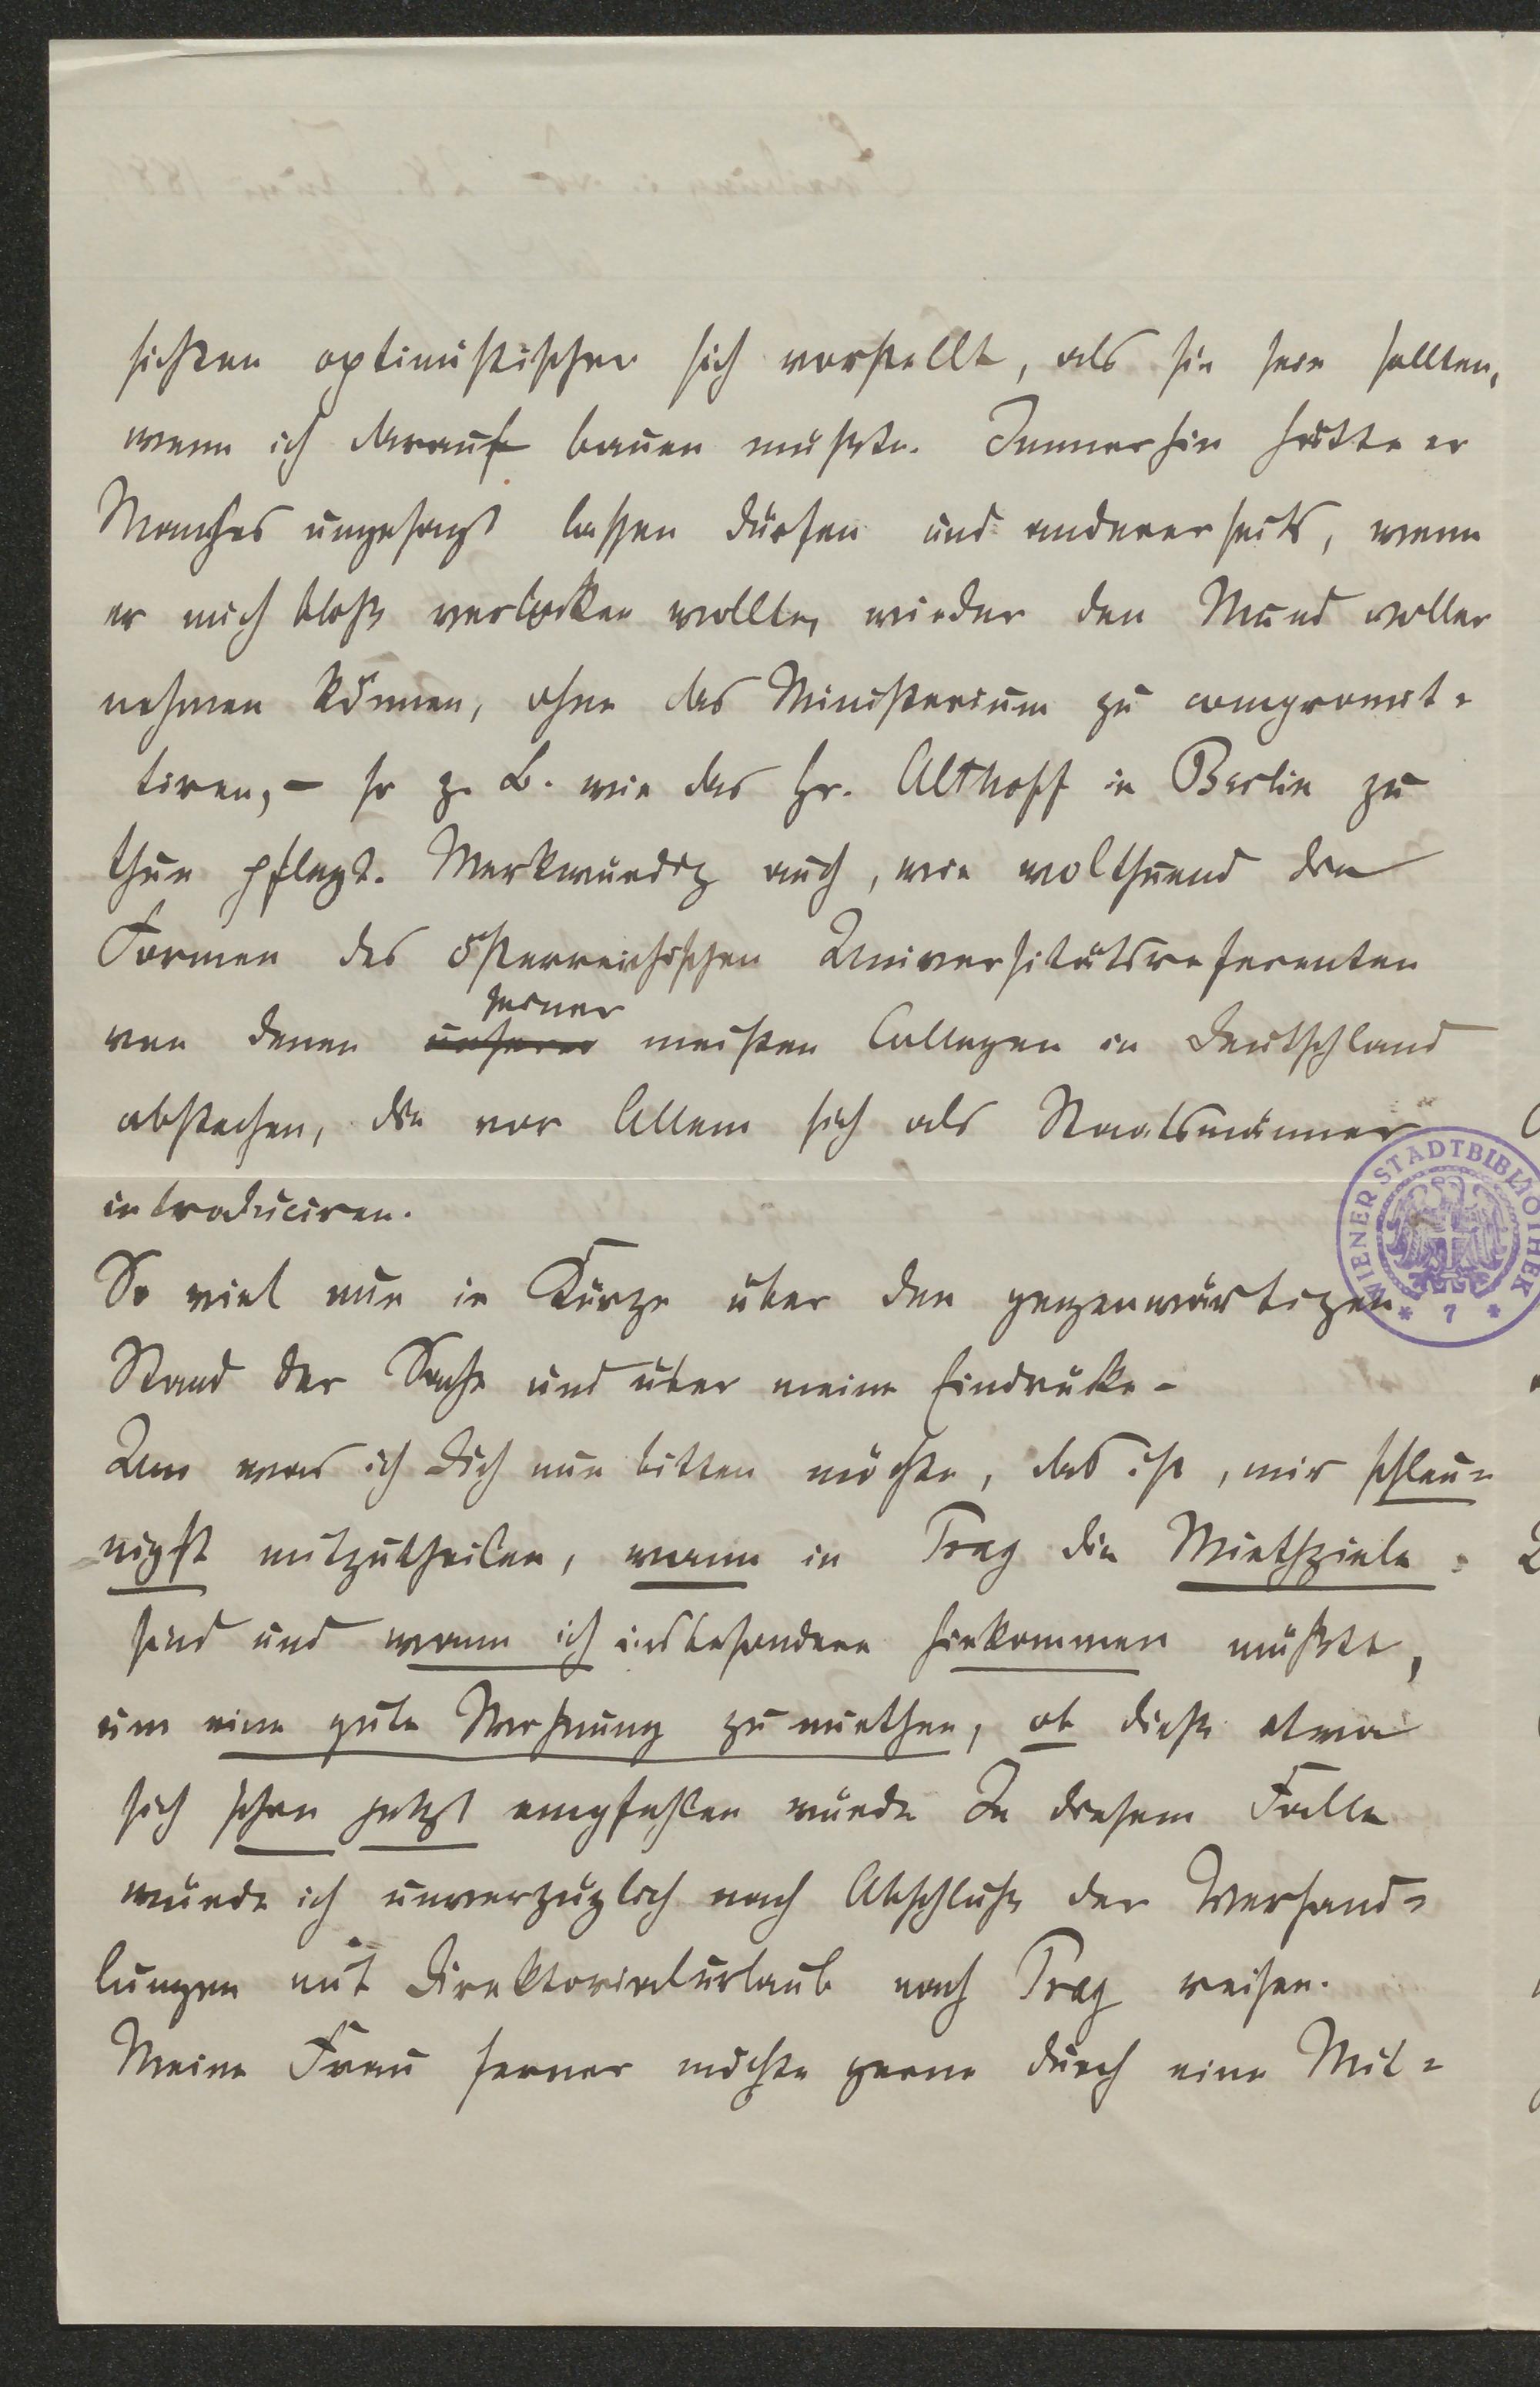 sichten optimistischer sich vorstellt, als sie sein sollten,
wenn ich darauf bauen müßte. Immerhin hätte er
Manches ungesagt lassen dürfen und andererseits, wenn
er mich bloß verlocken wollte, wieder den Mund voller
nehmen können, ohne das Ministerium zu compromit-
tiren, – so z. B. wie das Hr. Althoff in Berlin zu
thun pflegt. Merkwürdig auch, wie wolthuend die
Formen des österreichischen Universitätsreferenten
von denen unserer seiner meisten Collegen in Deutschland
abstechen, die vor Allem sich als Staatsmänner
introduciren.
So viel nun in Kürze über den gegenwärtigen
Stand der Sache und über meine Eindrücke –
Um was ich Dich nun bitten möchte, das ist, mir schleu-
nigst mitzutheilen, wann in Prag die Miethziele
sind und wann ich insbesondere hinkommen müßte,
um eine gute Wohnung zu miethen, ob dieß etwa
sich schon jetzt empfehlen würde In diesem Falle
würde ich unverzüglich nach Abschluß der Verhand-
lungen mit Direktorialurlaub nach Prag reisen.
Meine Frau ferner möchte gerne durch eine Mit-
WIENER STADTBIBLIOTHEK
* 7 *